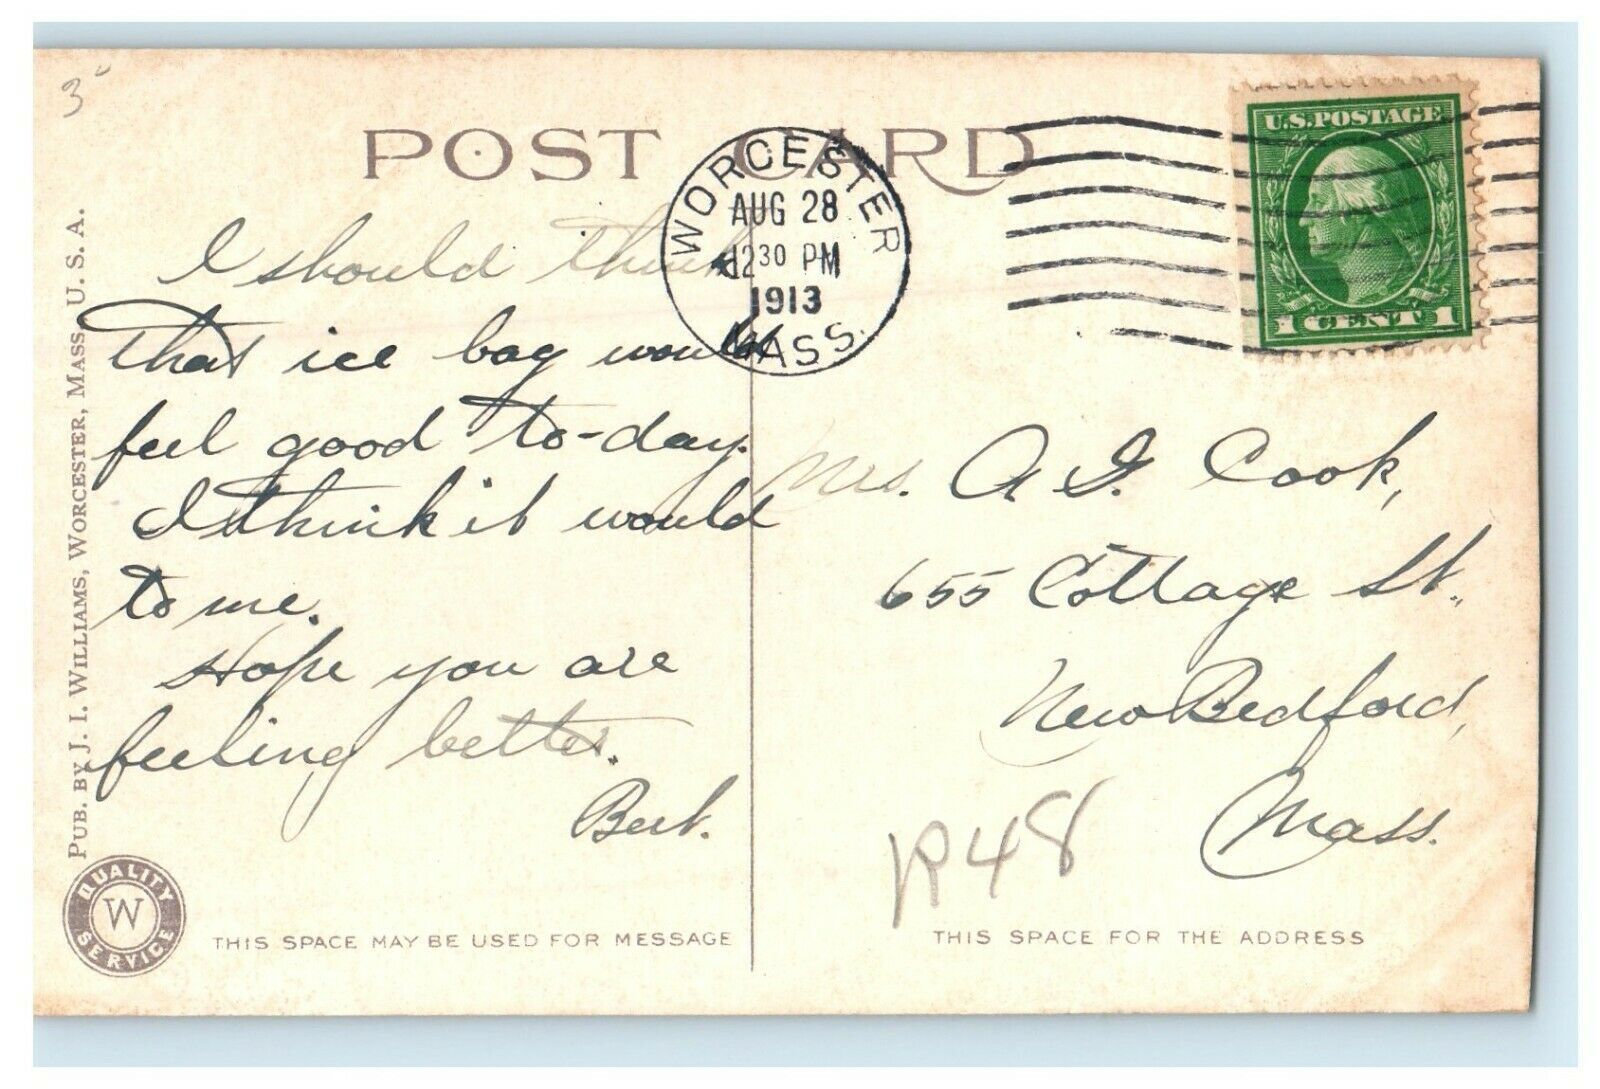 3"
POST CARD
WORCESTER
AUG 28
12 30 PM
1913
MASS.
U.S. POSTAGE
1 CENT 1
I should think
that ice bag would
feel good to-day.
I think it would
to me.
Hope you are
feeling better.
Bert.
Mrs. A G. Cook,
655 Cottage St.,
New Bedford,
Mass.
R48
PUB. BY J. I. WILLIAMS, WORCESTER, MASS. U. S. A.
QUALITY
W
SERVICE
THIS SPACE MAY BE USED FOR MESSAGE
THIS SPACE FOR THE ADDRESS